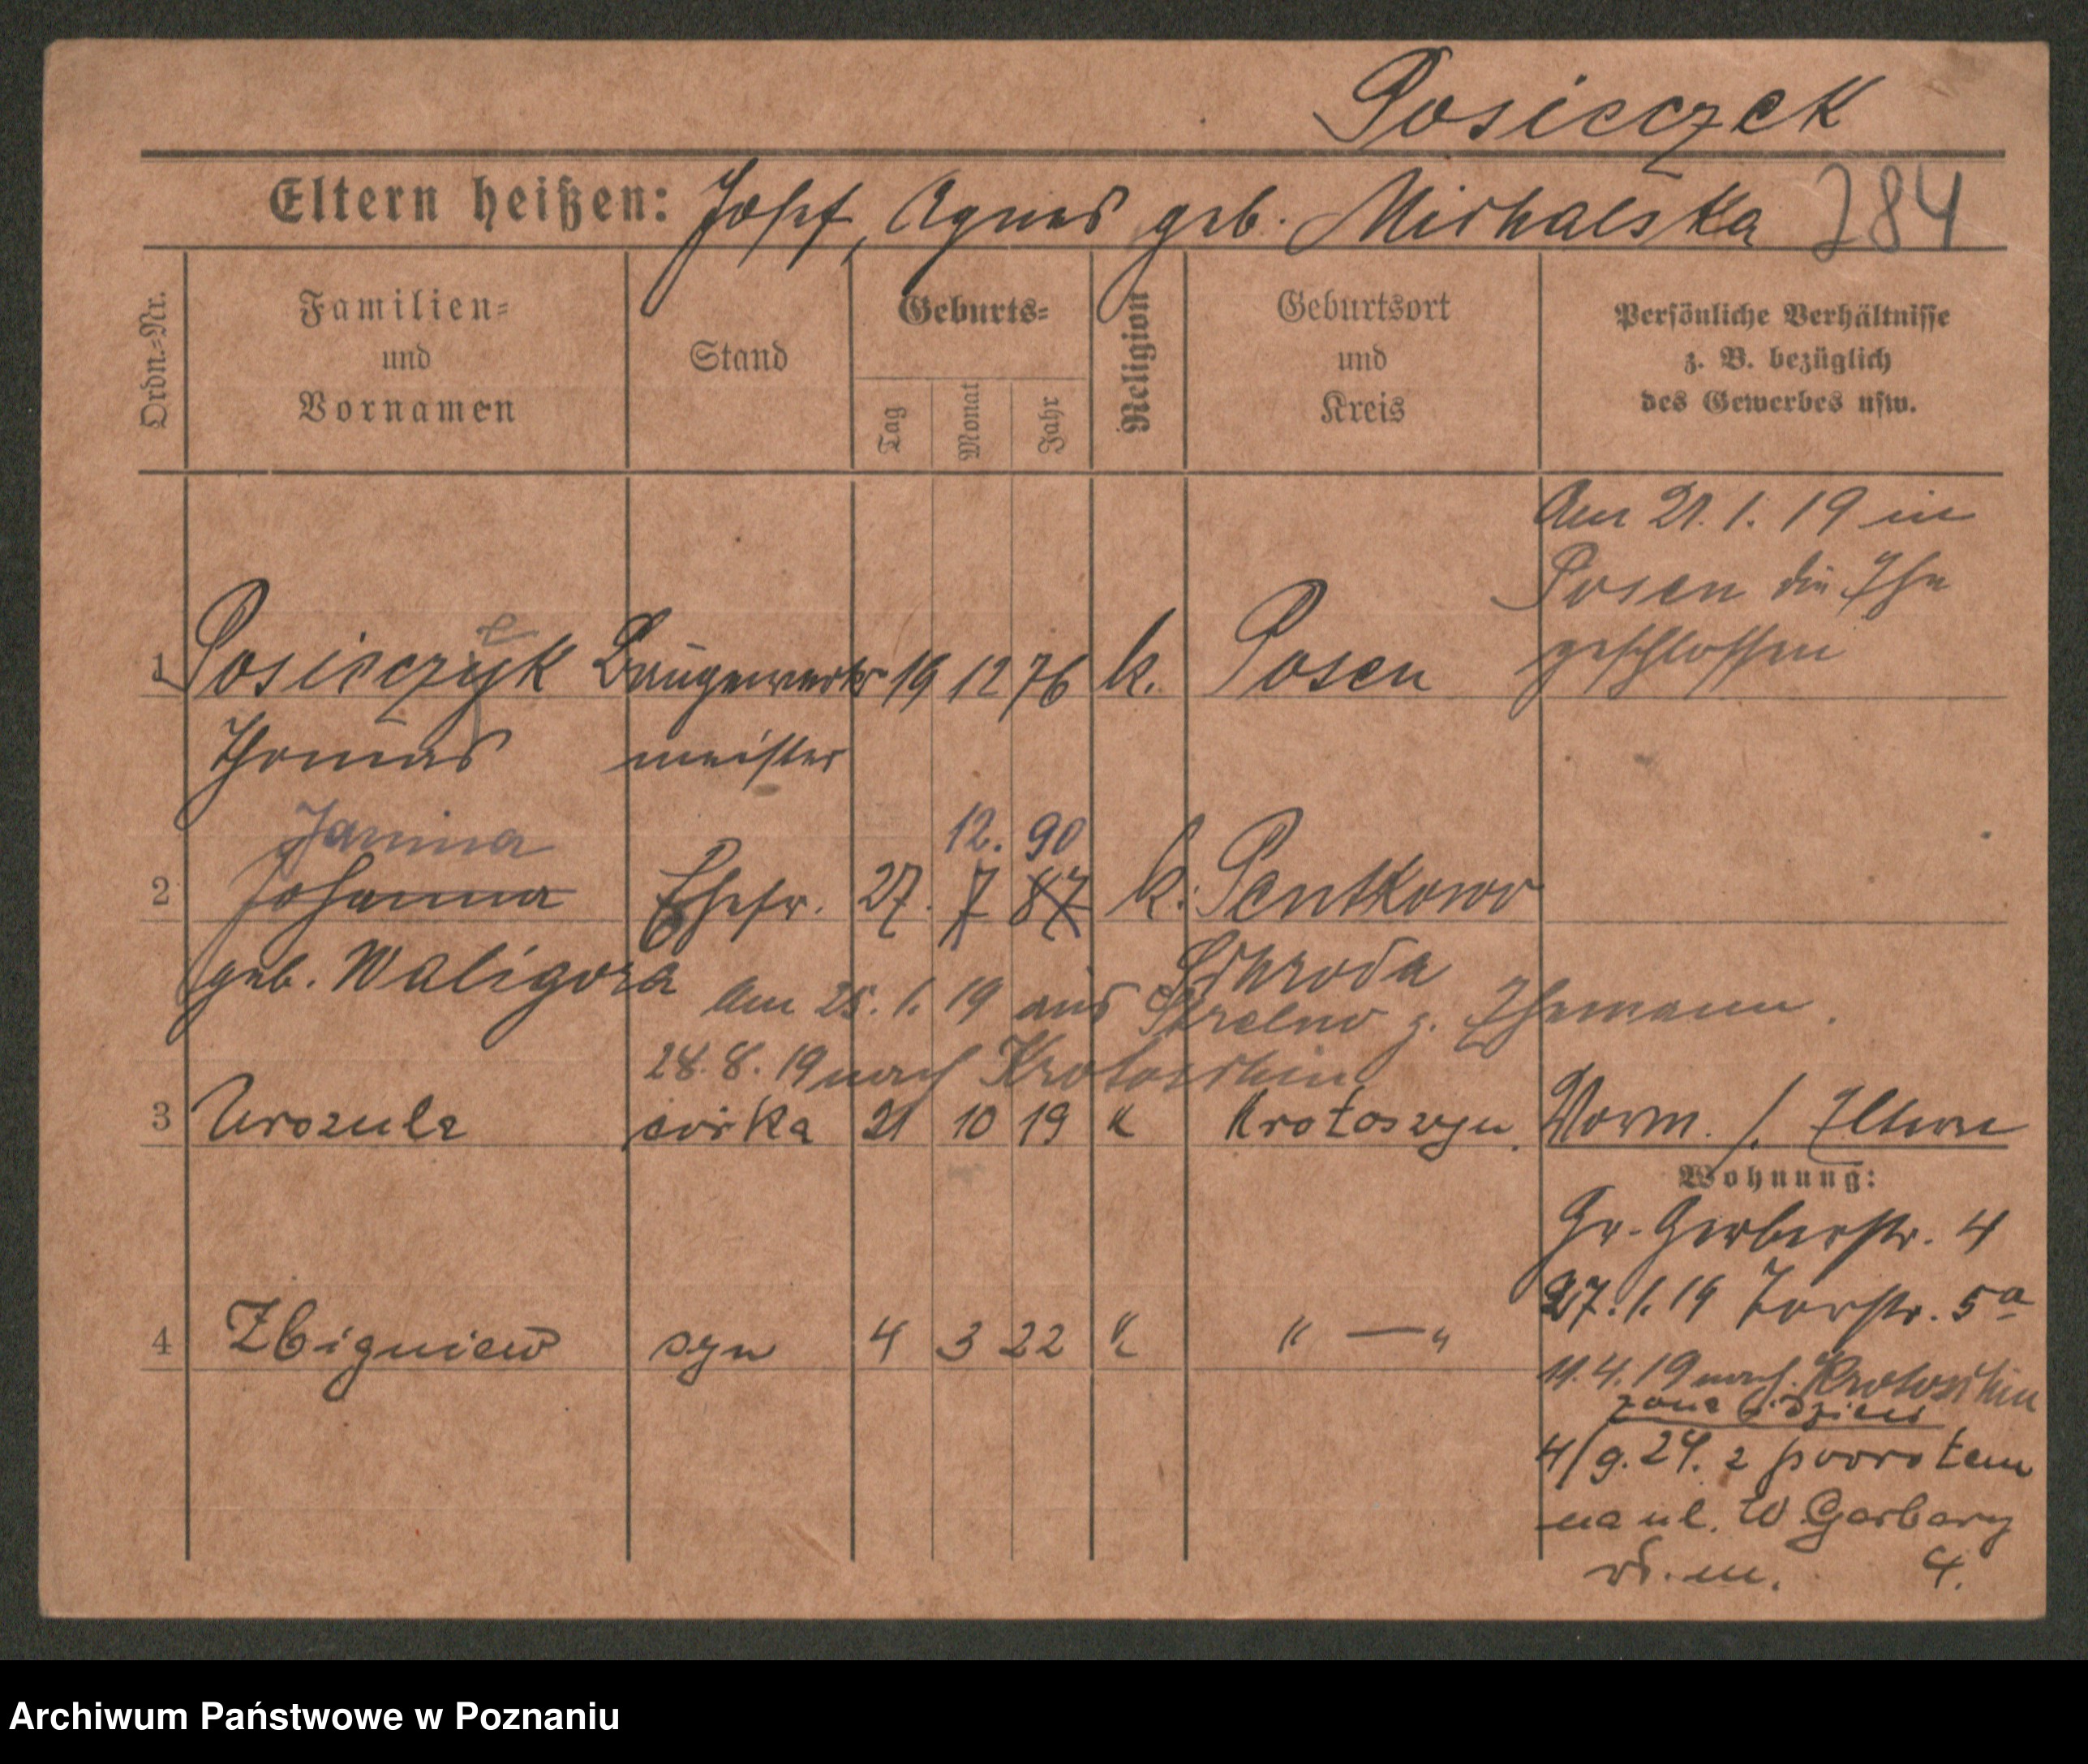 Posieczek
Eltern heißen: Josef, Agnes geb. Michalska 284
Ordn.-Nr.
Familien-
und
Vornamen
Stand
Geburts-
Tag
Monat
Jahr
Religion
Geburtsort
und
Kreis
Persönliche Verhältnisse
z. B. bezüglich
des Gewerbes usw.
Am 21.1.19 in
Posen die Ehe
geschlossen
e
1 Posieczyk Baugewerks 19 12 76 k. Posen
Thomas meister
Janina 12. 90
2 Johanna Ehefr. 27. 7 87 k. Pentkowo
geb. Waligora Schroda
Am 25.1.19 aus Strelno z. Ehemann.
28.8.19 nach Krotoschin
3 Urszula córka 21 10 19 k Krotoszyn. Vorm. /. Eltern
Wohnung:
Gr. Gerberstr. 4
27.1.19 Torstr. 5a
4 Zbigniew syn 4 3 22 k " — "
11.4.19 nach Krotoschin
żona i dzieci
4/9.24. z powrotem
na ul. W. Garbary
4.